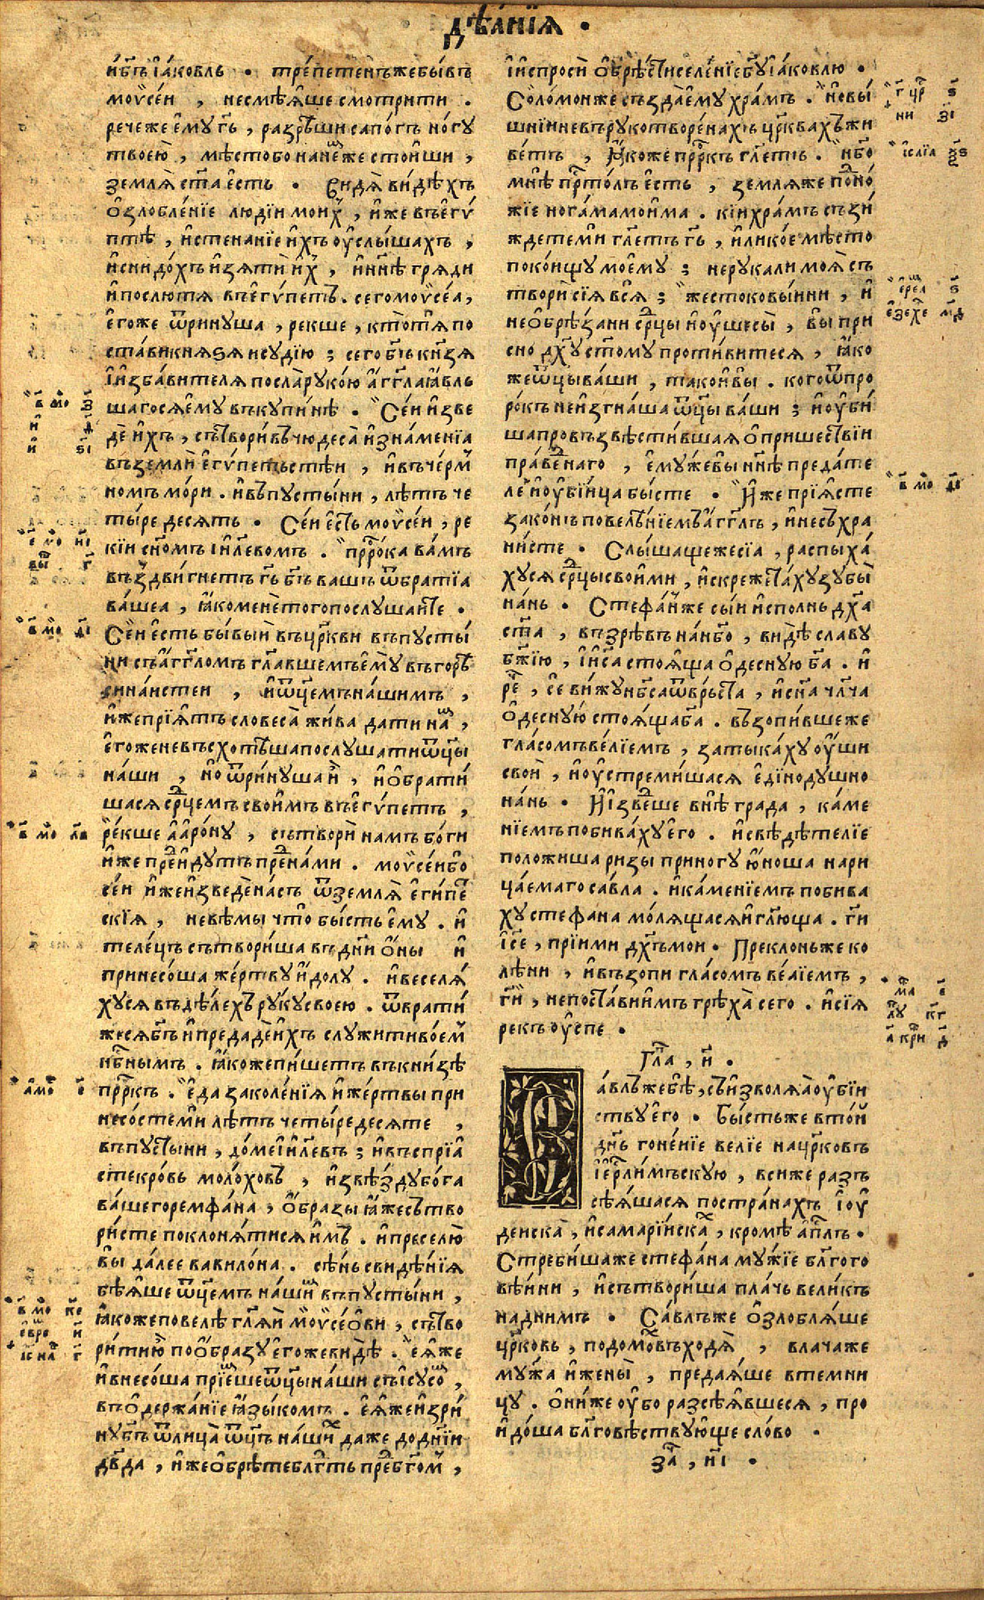 дѣа́нїѧ •
и҆бг҃ъ і҆а́ковль • трепетенъжебы́въ
моѷсе́и , несмѣѧ҆ше смотрити .
речеже е҆му гь҃ , разрѣши сапогъ ногу
твоею̀ , мѣстобо нане́мже стои҆ши ,
землѧ̀ ст҃а е҆сть • видѧ̀ ви́дѣхъ
о҆злобле́нїе люді́и мои́х , и҆же въе҆гѵ
птѣ , и҆стенанїе и҆хъ оу҆слы́шахъ ,
и҆снидо́хъ и҆зѧ́ти и҆х , и҆нн҃ѣ грѧди
и҆послютѧ въе҆гѵ́петъ . сегомоѷсе́а ,
е҆гоже ѿрину́ша , ре́кше , кто́тѧ по
ста́ви кнѧѕѧ исудїю ; сего бг҃ъ кнѧ́зѧ
і҆избави́телѧ посла̀ руко́ю а҆гг҃ла ꙗ҆вль
шагосѧе҆му въкупинѣ • Се́и и҆зве
дѐ и҆хъ , сътвори́въ чюдеса̀ и҆зна́менїа
въземлѝ е҆гѵ́петьстѣи , и҆въче́рм
номъ мо́ри . и҆въпусты́ни , лѣтъ че
ты́редесѧть • Се́и е҆сть моѷсе́и , ре
кїи сн҃омъ і҆и҃левомъ . прⷪ҇ро́ка ва́мъ
въздви́гнетъ гь҃ бг҃ъ вашъ ѿбратїа
ва́шеа , ꙗ҆коменѐ того послу́шаите .
Се́и е҆сть бы́выи въцр҃кви въпусты́
ни съа҆гг҃ломъ гл҃авшемъ е҆му̀ въгорѣ
сина́истеи , и҆ѿц҃емъ нашимъ ,
и҆жепрїѧ́тъ словеса̀ жи́ва дати на́м ,
е҆гоже невъсхотѣша послу́шати ѿцы
на́ши , но ѿрину́ша и҆ , и҆о҆брати́
шасѧ срⷣцемъ свои́мъ въе҆гѵ́петъ ,
ре́кше а҆аро́ну , сътворѝ намъ бо́ги
и҆же пре́идутъ пре́днами . моѷсе́ибо
се́и и҆жеи҆зведе́ на́съ ѿземлѧ̀ е҆ги́пе
скїа , невѣ́мы что̀ бы́сть е҆му . и҆
теле́цъ сътвори́ша въдн҃и о҆ны и҆
принесо́ша же́ртву и҆долу . и҆веселѧ́
хусѧ въдѣ́лехъ руку своею . ѿврати́
жесѧ бг҃ъ и҆предадѐ и҆хъ служити во́ем
нб҃нымъ . ꙗ҆коже пи́шетъ въкни́зѣ
прⷪ҇ркъ . е҆да заколе́нїа и҆же́ртвы при
несо́сте ми лѣтъ четы́редесѧте ,
въпусты́ни , до́ме і҆и҃левъ ; и҆въспрїа́
сте кро́въ моло́ховъ , и҆звѣзду бо́га
ва́шего ремфа́на , о҆бразы ꙗ҆же сътво
ри́сте поклонѧ́тисѧ и҆мъ . и҆преселю̀
вы да́лее вавило́на . сѣ́нь свидѣ́нїѧ
бѣ́ѧше ѿц҃емъ на́шим въпусты́ни ,
ꙗ҆коже повелѣ̀ гл҃ѧи моѷсе́ови , сътво
ри́ти ю̀ по о҆бразу е҆гоже ви́дѣ . е҆ѧ́же
и҆внесо́ша прїе́мше ѿцы на́ши съі҆сусом ,
въо҆держа́нїе ꙗ҆зы́комъ . е҆ѧ́же и҆зри́
ну бг҃ъ ѿлица̀ ѿц҃ъ наших даже до дн҃їи
дв҃да , и҆же о҆брѣте блг҃ть пре́дбг҃ом ,
і҆испросѝ о҆брѣстѝ селе́нїе бг҃у і҆а́ковлю .
Соломо́нже създа̀ е҆му храмъ . но вы́
шнїи невърукотворе́нахъ цр҃квахъ жи
ве́тъ , ꙗ҆коже прⷪ҇ркъ гл҃етъ . нб҃о
мнѣ̀ прⷭ҇то́лъ е҆сть , землѧ́же подно́
жїе нога́ма мои́ма . кіи храмъ съзи́
ждете ми гл҃етъ гь҃ , и҆ликое мѣ́сто
поко́ищу моему ; нерука ли моѧ̀ съ
творѝ сїѧ всѧ̀ ; жестоковы́ини , и҆
необрѣ́зани срⷣцы и҆оу҆шесы̀ , вы при
сно дх҃у ст҃ому проти́витесѧ , ꙗ҆ко
же ѿцы ва́ши , тако и҆вы . кого ѿпро
ро́къ неи҆згна́ша ѿцы ва́ши ; и҆оу҆би́
ша провъзвѣсти́вшаѧ о҆прише́ствїи
пра́веднаго , е҆му́же вы нн҃ѣ преда́те
ле и҆оу҆бі́ица бысте • И҆же прїѧ́сте
зако́нъ повелѣ́нїемъ а҆гг҃лъ , и҆несъхра
ни́сте • Слы́шащеже сїа , распыха́
хусѧ срⷣцы свои́ми , и҆скрежета́ху зубы̀
на́нь • Стефа́нже сы́и и҆сполнь дх҃а
ст҃а , възрѣ́въ нанб҃о , ви́дѣ сла́ву
бж҃їю , і҆і҃са стоѧ҆ща о҆десную бг҃а . и҆
ре҃ , се́ вижу нб҃са ѿве́рьста , и҆сн҃а чл҃ча
о҆десную стоѧ́ща бг҃а . възопи́вшеже
гла́сомъ ве́лїемъ , затыка́ху оу҆ши
своѝ , и҆оу҆стреми́шасѧ е҆дінодушно
на́нь • И҆ і҆зве́дше внѣ̀ гра́да , ка́ме
нїемъ побива́ху е҆го . и҆свѣдѣ́телїе
положи́ша ри́зы при ногу ю҆ноша нари
ца́емаго са́вла . и҆ка́менїемъ побива
ху стефа́на мо́лѧщасѧ и҆гл҃юща . гі҃и
і҆се҃ , прїими дх҃ъ мои • Прекло́ньже ко
лѣ́ни , и҆възопѝ гласомъ ве́лїемъ ,
гі҃и , непоста́ви и҆мъ грѣха̀ сего . и҆сїѧ
рекъ оу҆спе .
Гл҃а , и҃ .
а́влъже бѣ̀ , съизволѧ́а оу҆бїи
ству е҆го • Бы́стьже втои
дн҃ь гоне́нїе ве́лїе на цр҃ковъ
і҆ер҃ли́мъскую , всиже разъ
сѣ́ѧшасѧ постра́нахъ і҆оу
деиска̀ , и҆самарі́иска́х , кромѣ̀ а҆пл҃ъ .
Стребѝшаже стефа́на му́жїе благого
вѣ́ини , и҆сътвори́ша пла́чь вели́къ
наднимъ • Са́влъже о҆злоблѧ́ше
цр҃ковь , подомо́х въходѧ̀ , влачаже
му́жа и҆жены̀ , предаѧ́ше втемни
цу . о҆ниже оу҆бо разсѣ́ѧвшесѧ , про
и҆до́ша блг҃овѣству́юще сло́во .
за҃ , и҃і •